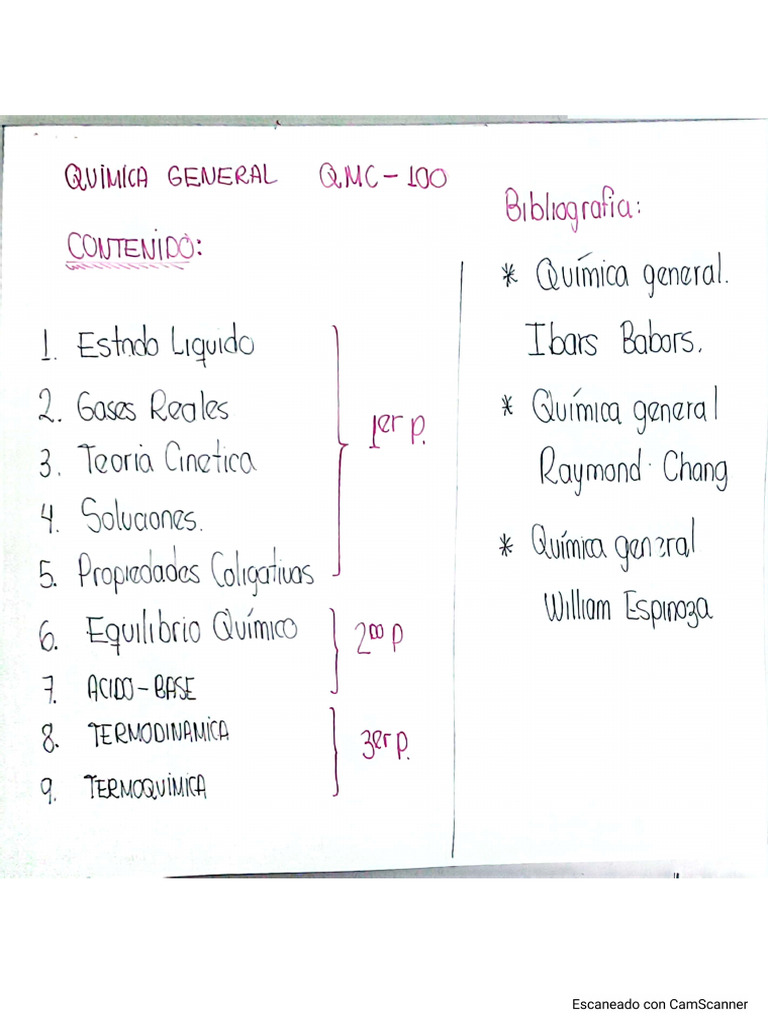 QUÍMICA GENERAL QMC-100
CONTENIDO:
1. Estado Liquido
2. Gases Reales
3. Teoria Cinetica
4. Soluciones.
5. Propiedades Coligativas
1er p.
6. Equilibrio Químico
7. ACIDO-BASE
2do p
8. TERMODINAMICA
9. TERMOQUÍMICA
3er p.
Bibliografia:
* Química general.
Ibars Babors.
* Química general
Raymond Chang
* Química general
William Espinoza
Escaneado con CamScanner